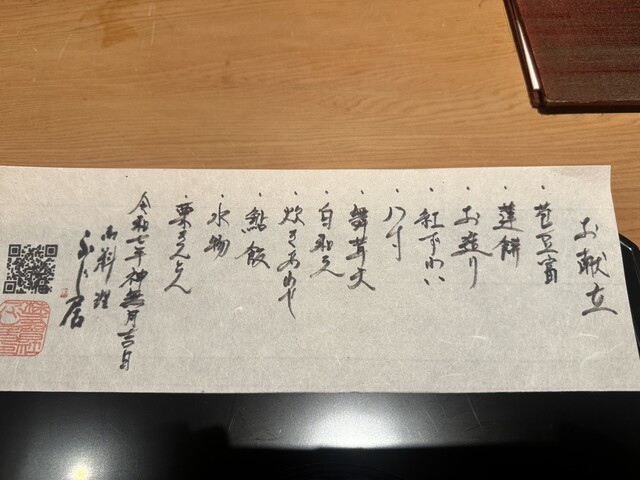 お献立
・苞豆富
・蓮餅
・お造り
・紅ずわい
・八寸
・舞茸火
・白和え
・炊きあわせ
・鮎飯
・水物
・栗きんとん
令和七年神無月吉日
御料理
ふじ居